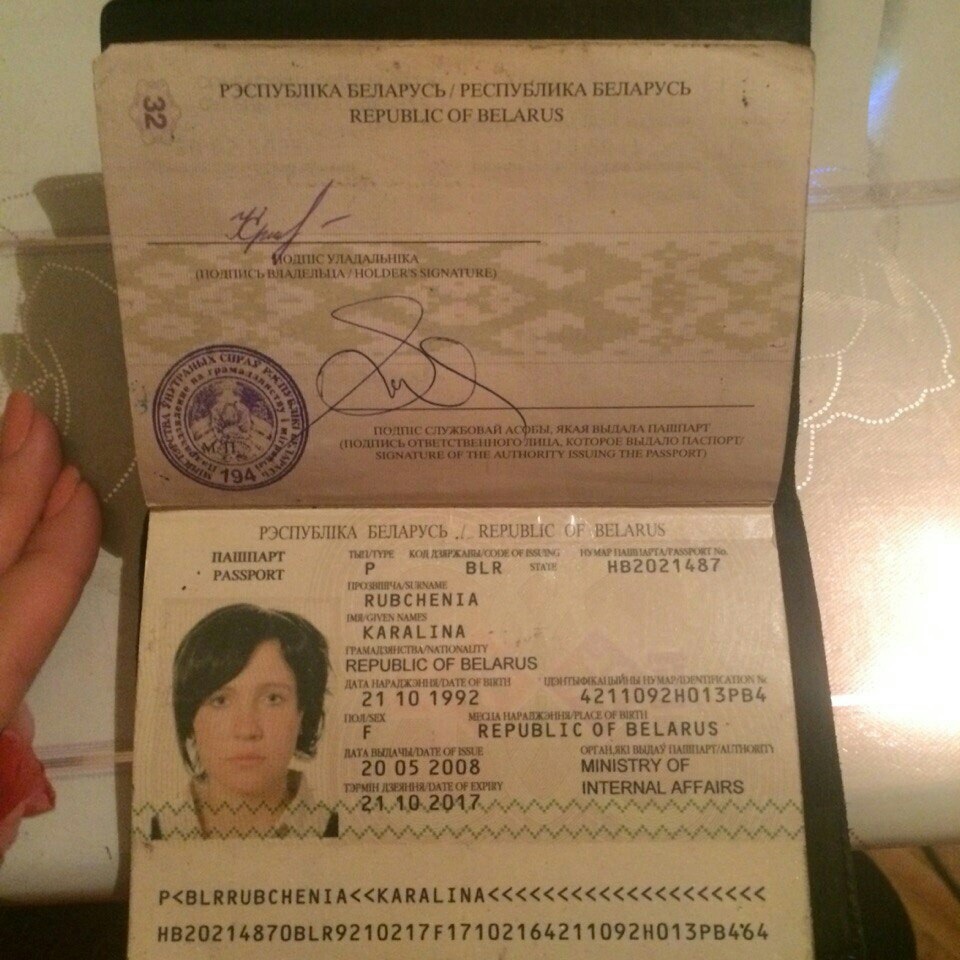 32
РЭСПУБЛІКА БЕЛАРУСЬ / РЕСПУБЛИКА БЕЛАРУСЬ
REPUBLIC OF BELARUS
ПОДПІС УЛАДАЛЬНІКА
(ПОДПИСЬ ВЛАДЕЛЬЦА / HOLDER'S SIGNATURE)
М.П.
194
ПОДПІС СЛУЖБОВАЙ АСОБЫ, ЯКАЯ ВЫДАЛА ПАШПАРТ
(ПОДПИСЬ ОТВЕТСТВЕННОГО ЛИЦА, КОТОРОЕ ВЫДАЛО ПАСПОРТ/
SIGNATURE OF THE AUTHORITY ISSUING THE PASSPORT)
РЭСПУБЛІКА БЕЛАРУСЬ / REPUBLIC OF BELARUS
ПАШПАРТ
PASSPORT
ТЫП/TYPE КОД ДЗЯРЖАВЫ/CODE OF ISSUING STATE НУМАР ПАШПАРТА/PASSPORT No.
P BLR HB2021487
ПРОЗВІШЧА/SURNAME
RUBCHENIA
ІМЯ/GIVEN NAMES
KARALINA
ГРАМАДЗЯНСТВА/NATIONALITY
REPUBLIC OF BELARUS
ДАТА НАРАДЖЭННЯ/DATE OF BIRTH ІДЭНТЫФІКАЦЫЙНЫ НУМАР/IDENTIFICATION №
21 10 1992 4211092H013PB4
ПОЛ/SEX МЕСЦА НАРАДЖЭННЯ/PLACE OF BIRTH
F REPUBLIC OF BELARUS
ДАТА ВЫДАЧЫ/DATE OF ISSUE ОРГАН,ЯКІ ВЫДАЎ ПАШПАРТ/AUTHORITY
20 05 2008 MINISTRY OF
INTERNAL AFFAIRS
ТЭРМІН ДЗЕЯННЯ/DATE OF EXPIRY
21 10 2017
P<BLRRUBCHENIA<<KARALINA<<<<<<<<<<<<<<<<<<<<
HB20214870BLR9210217F17102164211092H013PB464